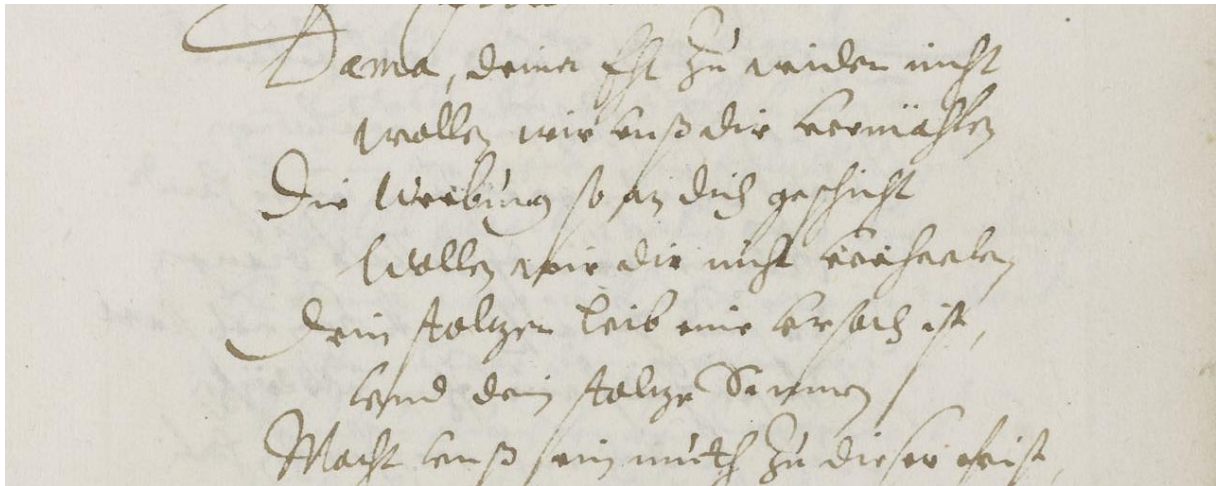 Dama, deiner Eht zu wider nicht
wollen wir vnß dir vermählen
Die Werbung so an dich geschicht
Wollen wir dir nicht verheelen
Dein stoltzer leib eine vrsach ist,
vnd dein stoltze Sinnen
Macht vnß ein muth zu dieser frist,